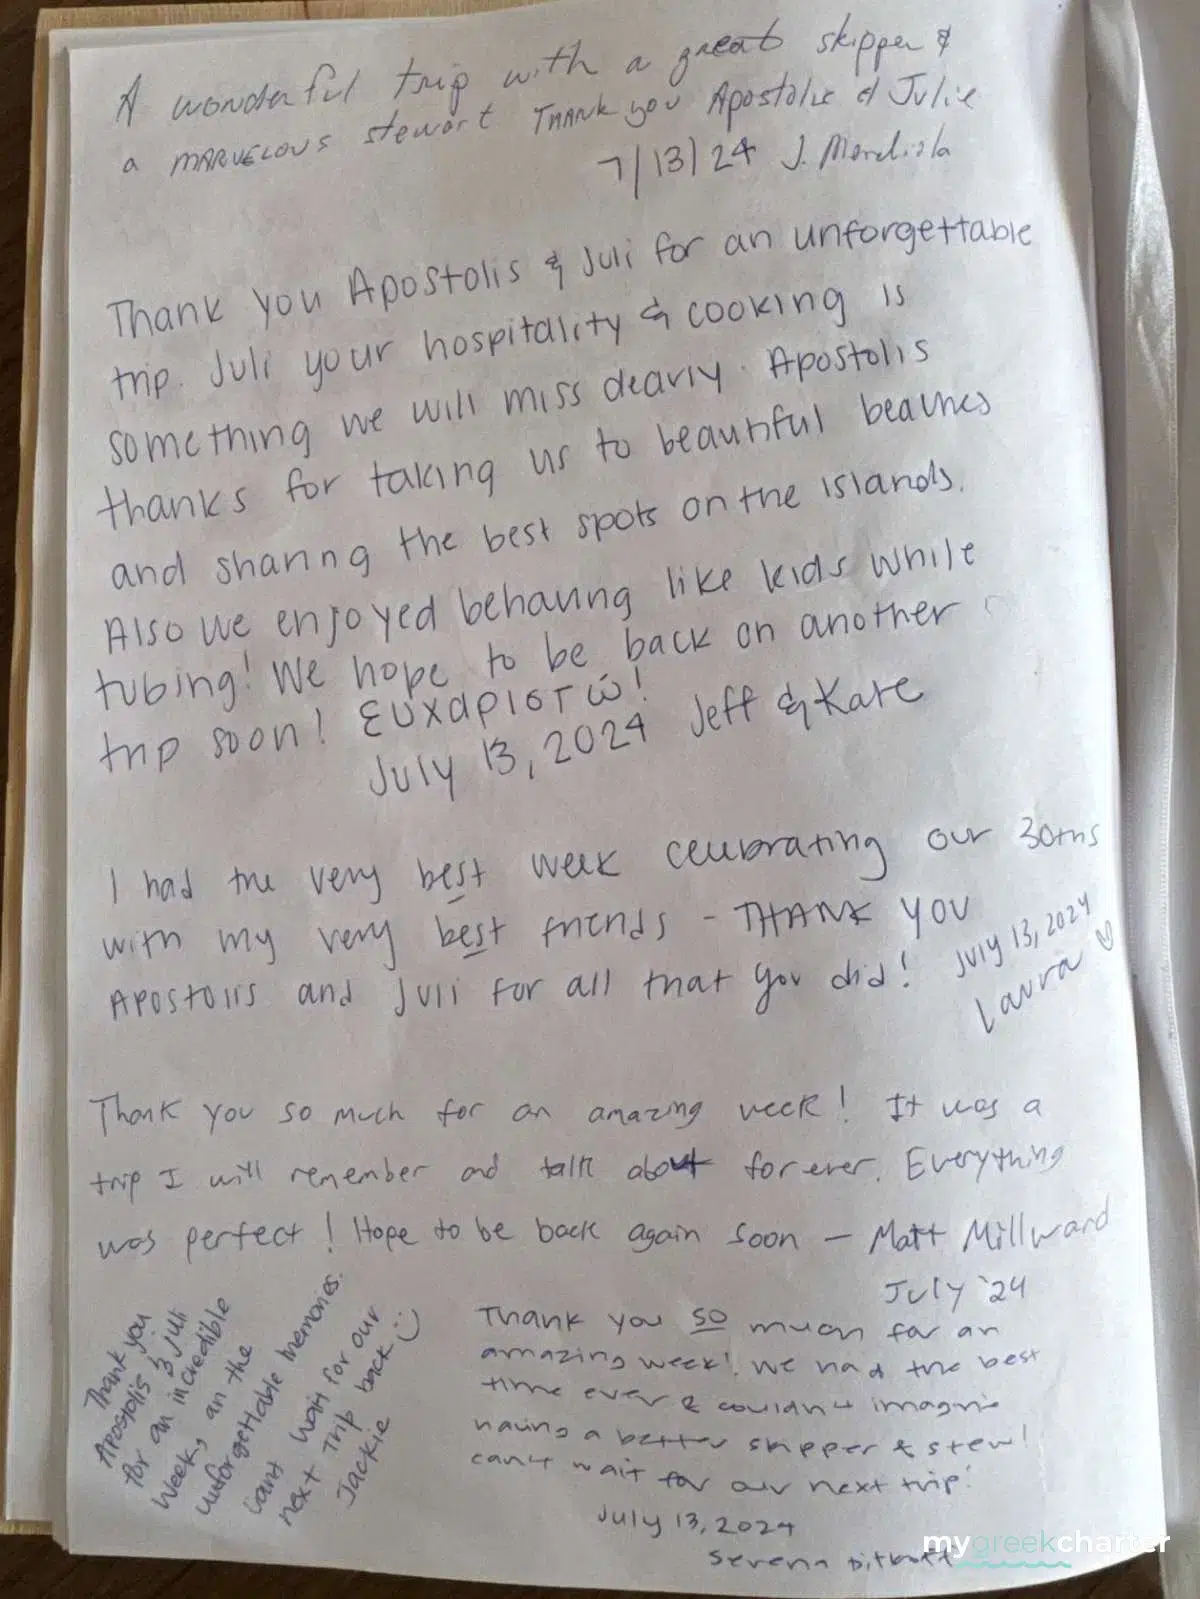 A wonderful trip with a great skipper &
a MARVELOUS stewart THANK you Apostolis & Julie
7/13/24 J. Mendiola
Thank you Apostolis & Juli for an unforgettable
trip. Juli your hospitality & cooking is
something we will miss dearly. Apostolis
thanks for taking us to beautiful beaches
and sharing the best spots on the islands.
Also we enjoyed behaving like kids while
tubing! We hope to be back on another
trip soon! ευχαριστώ!
July 13, 2024 Jeff & Kate
I had the very best week celebrating our 30ths
with my very best friends - THANK YOU
Apostolis and Juli for all that you did!
July 13, 2024
Laura ♡
Thank you so much for an amazing week! It was a
trip I will remember and talk about forever. Everything
was perfect! Hope to be back again soon - Matt Millward
July '24
Thank you
Apostolis & Juli
for an incredible
week, an the
unforgettable memories.
cant wait for our
next trip back :)
Jackie
Thank you so much for an
amazing week! We had the best
time ever & couldn't imagine
having a better skipper & stew!
can't wait for our next trip!
July 13, 2024
Serena
mygreekcharter